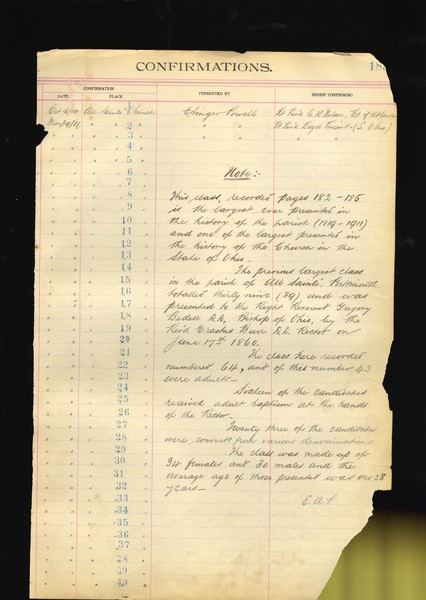 CONFIRMATIONS.
18
CONFIRMATION
DATE
PLACE
PRESENTED BY
BISHOP CONFIRMING
Oct 16/10 All Saints Church
Powell
Rt Revd
Rt Revd Boyd Vincent (S. Ohio)
2
3
4
5
6
7
8
9
10
11
12
13
14
15
16
17
18
19
20
21
22
23
24
25
26
27
28
29
30
31
32
33
34
35
36
37
38
39
40
Note:-
This class, recorded pages 182-185
is the largest ever presented in
the history of the parish (1819-1911)
and one of the largest presented in
the history of the Church in the
State of Ohio.
The previous largest class
in the parish of All Saints', Portsmouth
totalled thirty nine (39) and was
presented to the Right Reverent Gregory
Bedell D.D., Bishop of Ohio, by the
Rev'd Erastus Burr D.D. Rector on
June 17th 1860.
The class here recorded
numbered 64, and of this number 43
were adults-
Sixteen of the candidates
received adult baptism at the hands
of the Rector.
Twenty three of the candidates
were converts from various denominations
The class was made up of
34 females and 30 males and the
average age of those presented was over 28
years-
E.A.P.